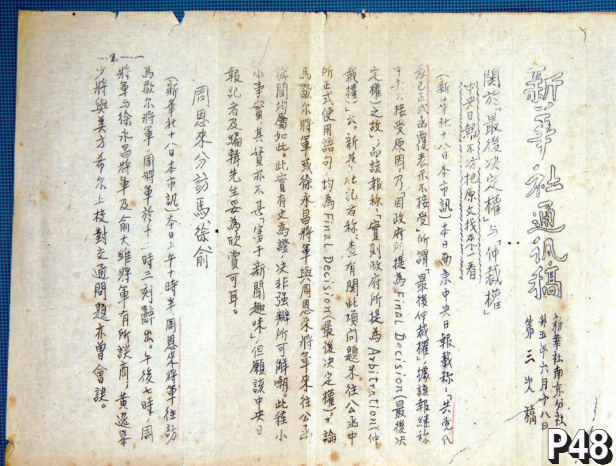 新華社通訊稿
新華社南京分社
卅五年六月十八日
第三次稿
關於「最後决定權」与「仲裁權」
中央日報不妨把原文找來一看
(新華社十八日本市訊)本日南京中央日報載称:「共党代
表已正式函覆表示不接受」所謂「最後仲裁權」據該報継称
接受原因,乃「因政府所提為Final Decision(最後决
定權)之故」,而該報称:「實則政府所提為Arbitration(仲
裁權)」云。新華社記者称:查有関此項問題來往公函中
所正式使用語句,均為Final Decision(最後决定權),論
馬歇尔將軍或徐永昌將軍與周恩來將軍來往公函
均屬如此。此實有文為證,决非强辯所可解嘲。此經小
小事實,其實亦不甚「富于新聞趣味」,但願該中央日
報記者及編輯先生妥為欣賞可耳。
周恩來分訪馬、徐、俞
(新華社十八日本市訊)本日上午十時半周恩來將軍往訪
馬歇尔將軍,周將軍於十一時三刻辭出。午後七時,周
將軍与徐永昌將軍及俞大維將軍有所談商;黃逸峯
少將與美方希尔上校對交通問題亦曾會談。
P48